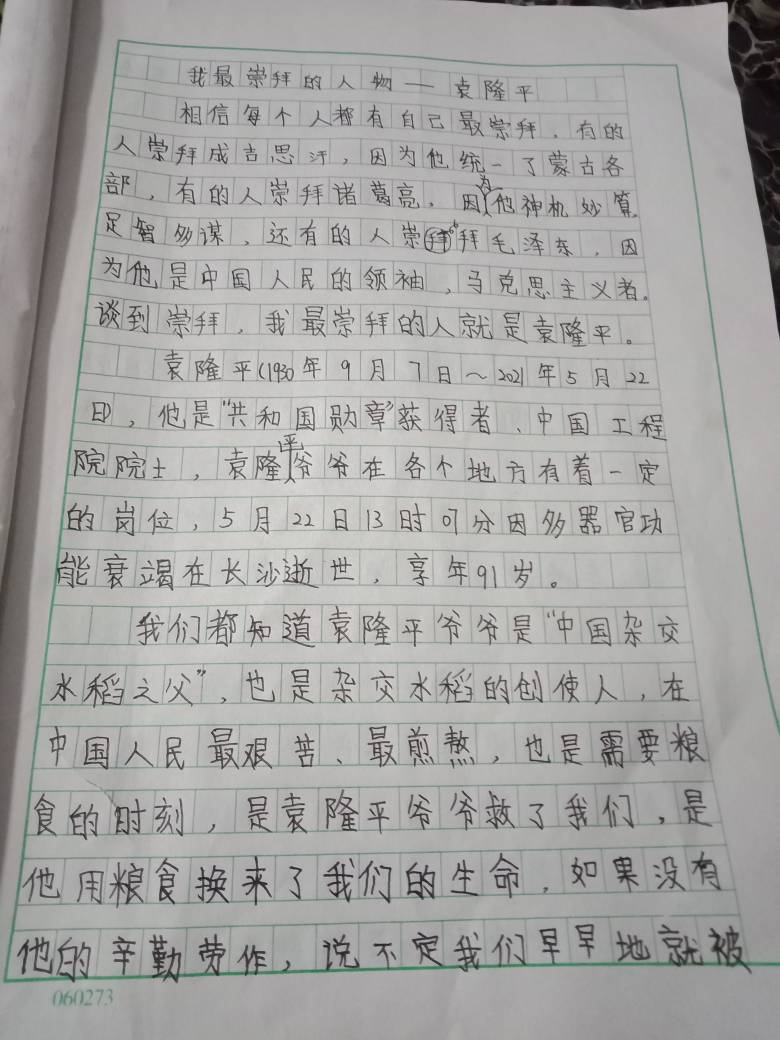 我最崇拜的人物——袁隆平
相信每个人都有自己最崇拜,有的
人崇拜成吉思汗,因为他统一了蒙古各
部,有的人崇拜诸葛亮,因为他神机妙算
足智多谋,还有的人崇拜毛泽东,因
为他是中国人民的领袖,马克思主义者。
谈到崇拜,我最崇拜的人就是袁隆平。
袁隆平(1930年9月7日~2021年5月22
日),他是"共和国勋章"获得者、中国工程
院院士,袁隆平爷爷在各个地方有着一定
的岗位,5月22日13时07分因多器官功
能衰竭在长沙逝世,享年91岁。
我们都知道袁隆平爷爷是"中国杂交
水稻之父",也是杂交水稻的创使人,在
中国人民最艰苦、最煎熬,也是需要粮
食的时刻,是袁隆平爷爷救了我们,是
他用粮食换来了我们的生命,如果没有
他的辛勤劳作,说不定我们早早地就被
060273